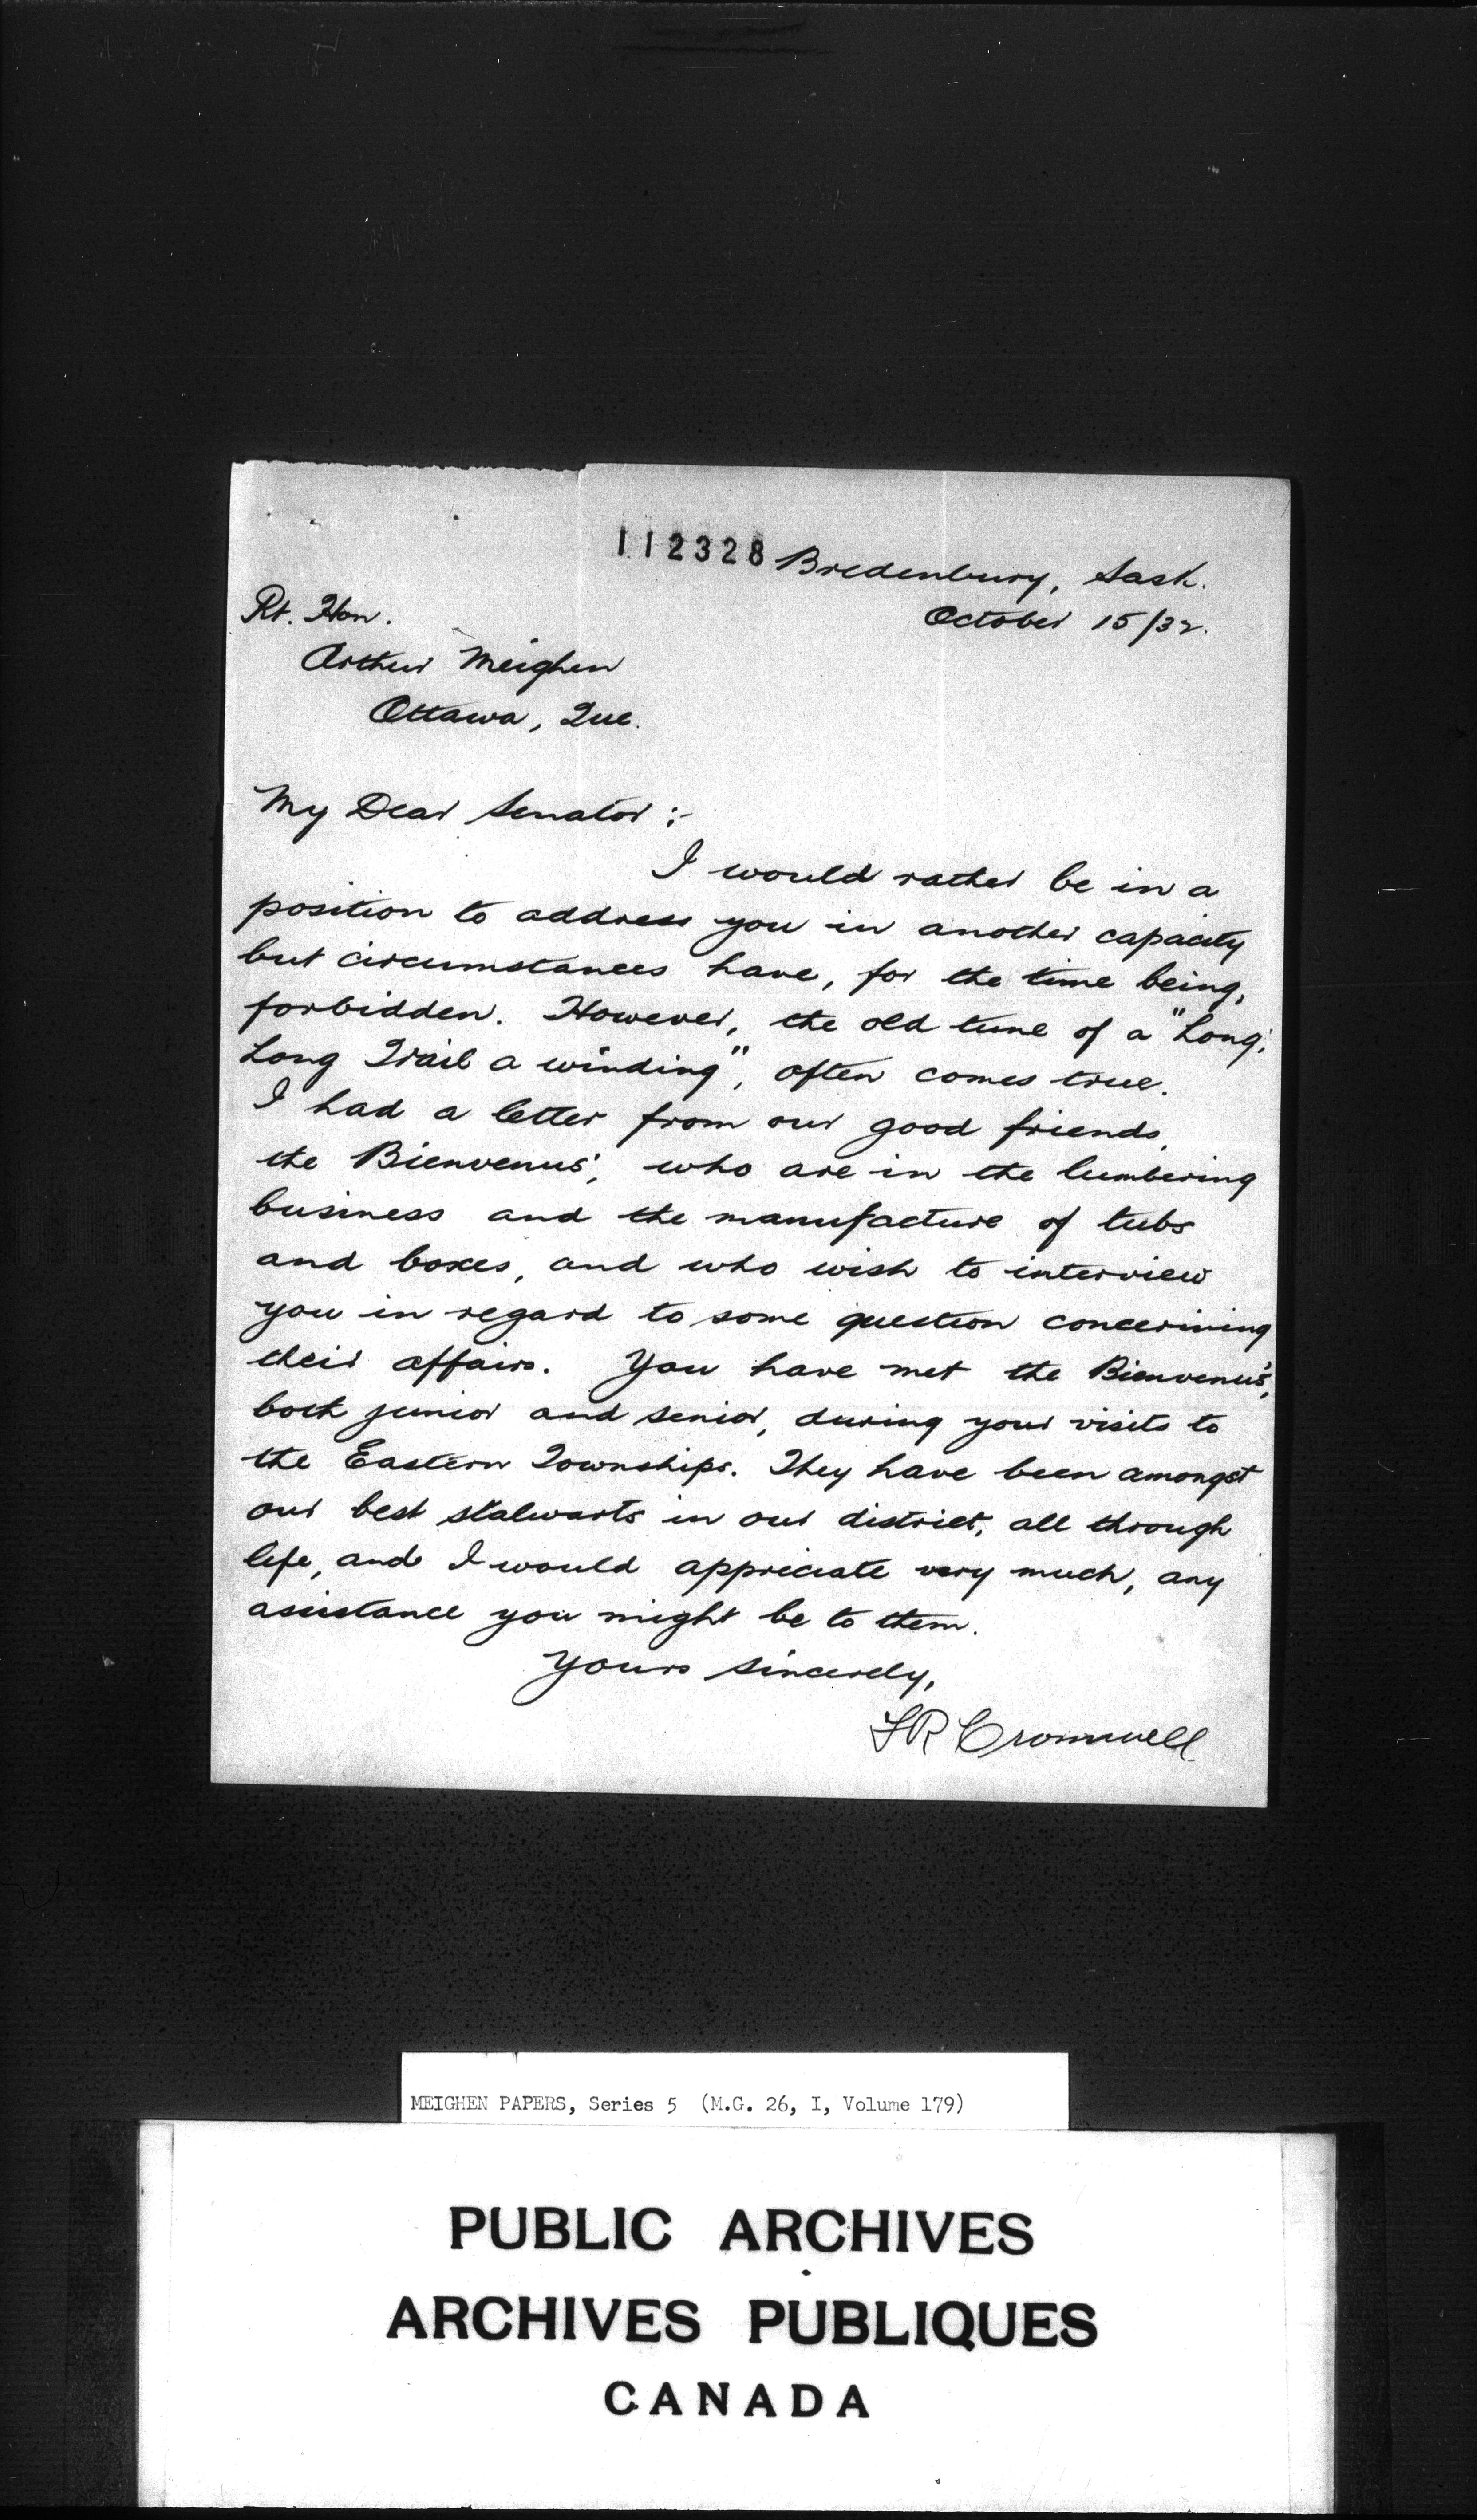 112328
Bredenbury, Sask.
October 15/32.
Rt. Hon.
Arthur Meighen
Ottawa, Que.
My Dear Senator :-
I would rather be in a
position to address you in another capacity
but circumstances have, for the time being,
forbidden. However, the old tune of a "Long,
Long Trail a winding", often comes true.
I had a letter from our good friends,
the Bienvenus', who are in the lumbering
business and the manufacture of tubs
and boxes, and who wish to interview
you in regard to some question concerining
their affairs. You have met the Bienvenus',
both junior and senior, during your visits to
the Eastern Townships. They have been amongst
our best stalwarts in our district, all through
life, and I would appreciate very much, any
assistance you might be to them.
Yours sincerely,
FR Cromwell
MEIGHEN PAPERS, Series 5 (M.G. 26, I, Volume 179)
PUBLIC ARCHIVES
ARCHIVES PUBLIQUES
CANADA